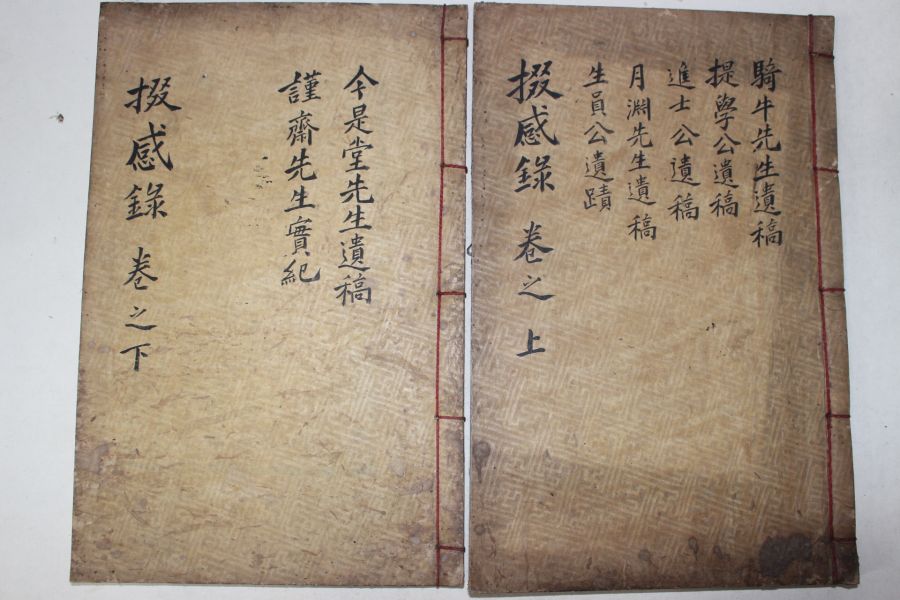 騎牛先生遺稿
提學公遺稿
進士公遺稿
月淵先生遺稿
生員公遺蹟
掇感錄 卷之上
今是堂先生遺稿
謹齋先生實紀
掇感錄 卷之下